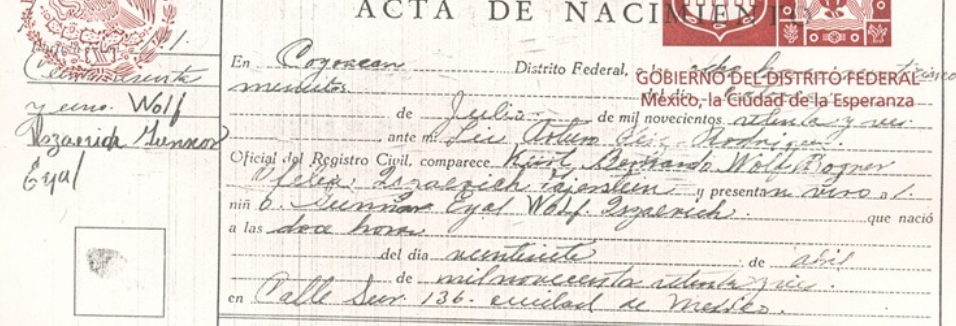 ACTA DE NACIMIENTO
GOBIERNO DEL DISTRITO FEDERAL
México, la Ciudad de la Esperanza
y uno. Wolf
Iszaevich Gunnar
Eyal
En Coyoacan Distrito Federal, a las ocho horas
minutos del día
de Julio de mil novecientos setenta y seis
ante mi Lic Arturo Rodriguez.
Oficial del Registro Civil, comparece Kurt Bernardo Wolf Bogner
y Iszaevich y presentan vivo a l
niñ o. Gunnar Eyal Wolf Iszaevich. que nació
a las doce horas
del día veintisiete de abril
de mil novecientos setenta y seis.
en Calle Sur 136. ciudad de Mexico.